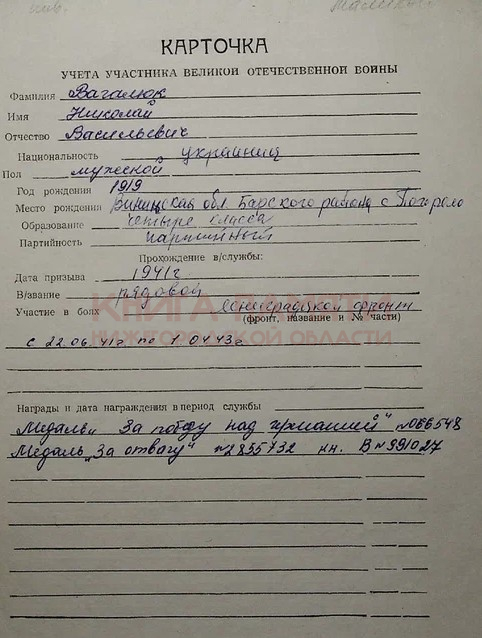 КАРТОЧКА
УЧЕТА УЧАСТНИКА ВЕЛИКОЙ ОТЕЧЕСТВЕННОЙ ВОИНЫ
Фамилия Вагалюк
Имя Николай
Отчество Васильевич
Национальность украинец
Пол мужской
Год рождения 1919
Место рождения Виницская обл. Барского района с
Образование четыре класса
Партийность партийный
Прохождение в/службы:
Дата призыва 1941г
В/звание рядовой
Участие в боях Ленинградской фронт
(фронт, название и № части)
КНИГА ПАМЯТИ
НИЖЕГОРОДСКОЙ ОБЛАСТИ
с 22.06.41г по 1.04.43г.
Награды и дата награждения в период службы
Медаль „За победу над германией" №066548
Медаль „За отвагу" №2855732 кн. В №991027